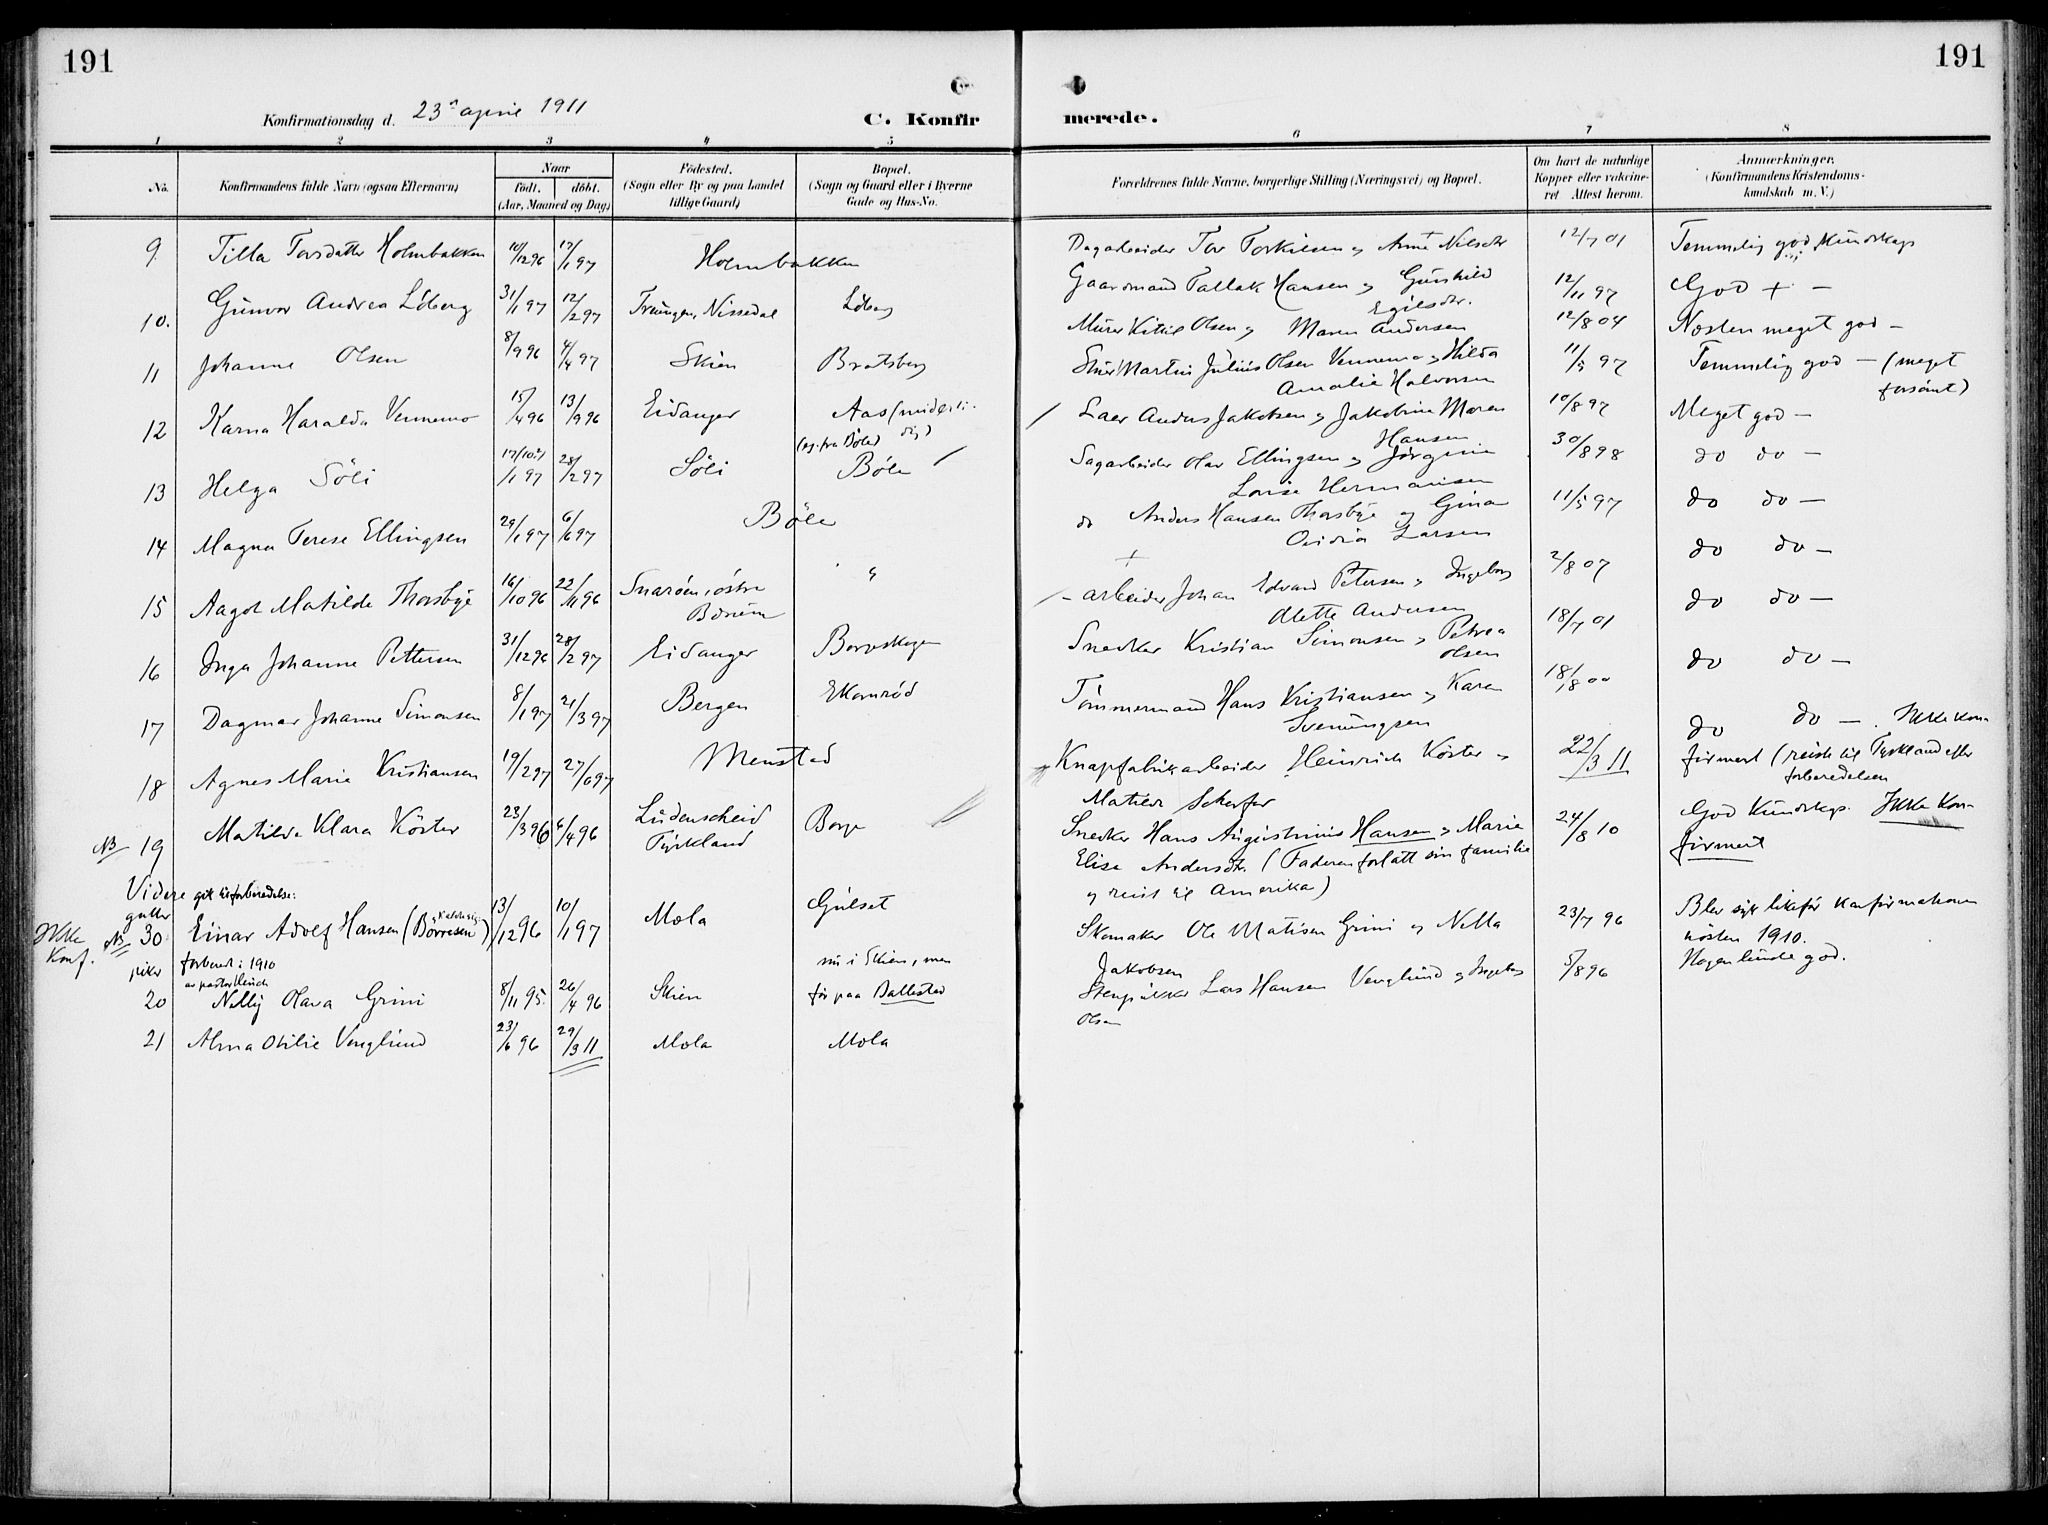 191
191
Konfirmationsdag d. 23 april 1911
C. Konfir
merede.
1 2 3 4 5
6 7 8
No.
Konfirmandens fulde Navn (ogsaa Efternavn)
Naar
födt. döbt.
(Aar, Maaned og Dag)
Födested.
(Sogn eller By og paa Landet
tillige Gaard)
Bopæl.
(Sogn og Gaard eller i Byerne
Gade og Hus-No.
Forældrenes fulde Navne, borgerlige Stilling (Næringsvei) og Bopæl.
Om havt de naturlige
Kopper eller vakcine-
ret Attest herom.
Anmærkninger.
(Konfirmandens Kristendoms-
kundskab m. V.)
9. Tilla Torsdatter Holmbakken 10/12 96 17/1 97 Holmbakken
10. Gunvor Andrea Löberg 31/1 97 12/2 97 Treungen, Nissedal Löberg
11 Johanne Olsen 8/9 96 4/4 97 Skien Bratsberg
12 Karna Haralda Vennemo 15/4 96 13/9 96 Eidanger Aas (midlerti-
dig)
(og fra Böle)
13 Helga Söli 17/1 97 28/2 97 Söli Böle
14 Magna Terese Ellingsen 29/1 97 6/6 97 Böle
15 Aagot Matilde Thorsbye 16/10 96 22/11 96 Snaröen, östre "
Bærum
16 Inga Johanne Pettersen 31/12 96 28/2 97 Eidanger Borgeskogen
17 Dagmar Johanne Simonsen 8/1 97 21/3 97 Bergen Ekornröd
18 Agnes Marie Kristiansen 19/2 97 27/6 97 Menstad
NB 19 Matilde Klara Köster 23/3 96 6/4 96 Lüdenscheid Borge
Tyskland
Videre gik til forberedelse:
gutter
Ikke Konf. NB 30 Einar Adolf Hansen (Börresen) 13/12 96 10/1 97 Mæla Gulset
piker forbered. i 1910
av pastor Lunde
20 Nelly Olava Grini 8/11 95 26/4 96 Skien nu i Skien, men
för paa Ballestad
21 Alma Otilie Venglund 23/6 96 29/3 11 Mæla Mæla
Dagarbeider Tor Torkilsen og Anne Nilsdtr 12/7 01 Temmelig god kundskap
Gaardmand Tallak Hansen og Gunhild
Egilsdtr. 12/11 97 God + –
Murer Kitil Olsen og Maren Andersen 12/8 04 Næsten meget god –
Martin Julius Olsen Vennemo og Hilda
Amalie Halvorsen 11/5 97 Temmelig god – (meget
forsömt)
Anders Jakobsen og Jakobine Maren
Hansen 10/8 97 Meget god –
Sagarbeider Olav Ellingsen og Jörgine
Lovise Hermansen 30/8 98 do do –
do Anders Hansen Thorsbye og Gina
Ovidia Larsen 11/5 97 do do –
– arbeider Johan Edvard Petersen og Ingeborg
Alette Andersen 2/8 07 do do –
Snedker Kristian Simonsen og Petrea
Olsen 18/7 01 do do –
Tömmermand Hans Kristiansen og Karen
Svenungsen 18/8 00 do do –
Knapfabrikarbeider Heinrich Köster og
Matilde Scherfer 22/3 11 do do –. Ikke kon-
firmert (reiste til Tyskland efter
forberedelsen
Snedker Hans Augustinius Hansen og Marie
Elise Andersdtr. (Faderen forlatt sin familie
og reist til Amerika) 24/8 10 God Kundskap. Ikke kon-
firmert
Skomaker Ole Matisen Grini og Nella
Jakobsen 23/7 96 Blev syk likeför konfirmationen
hösten 1910.
Lars Hansen Venglund og Ingeborg
Olsen 5/8 96 Nogenlunde god.